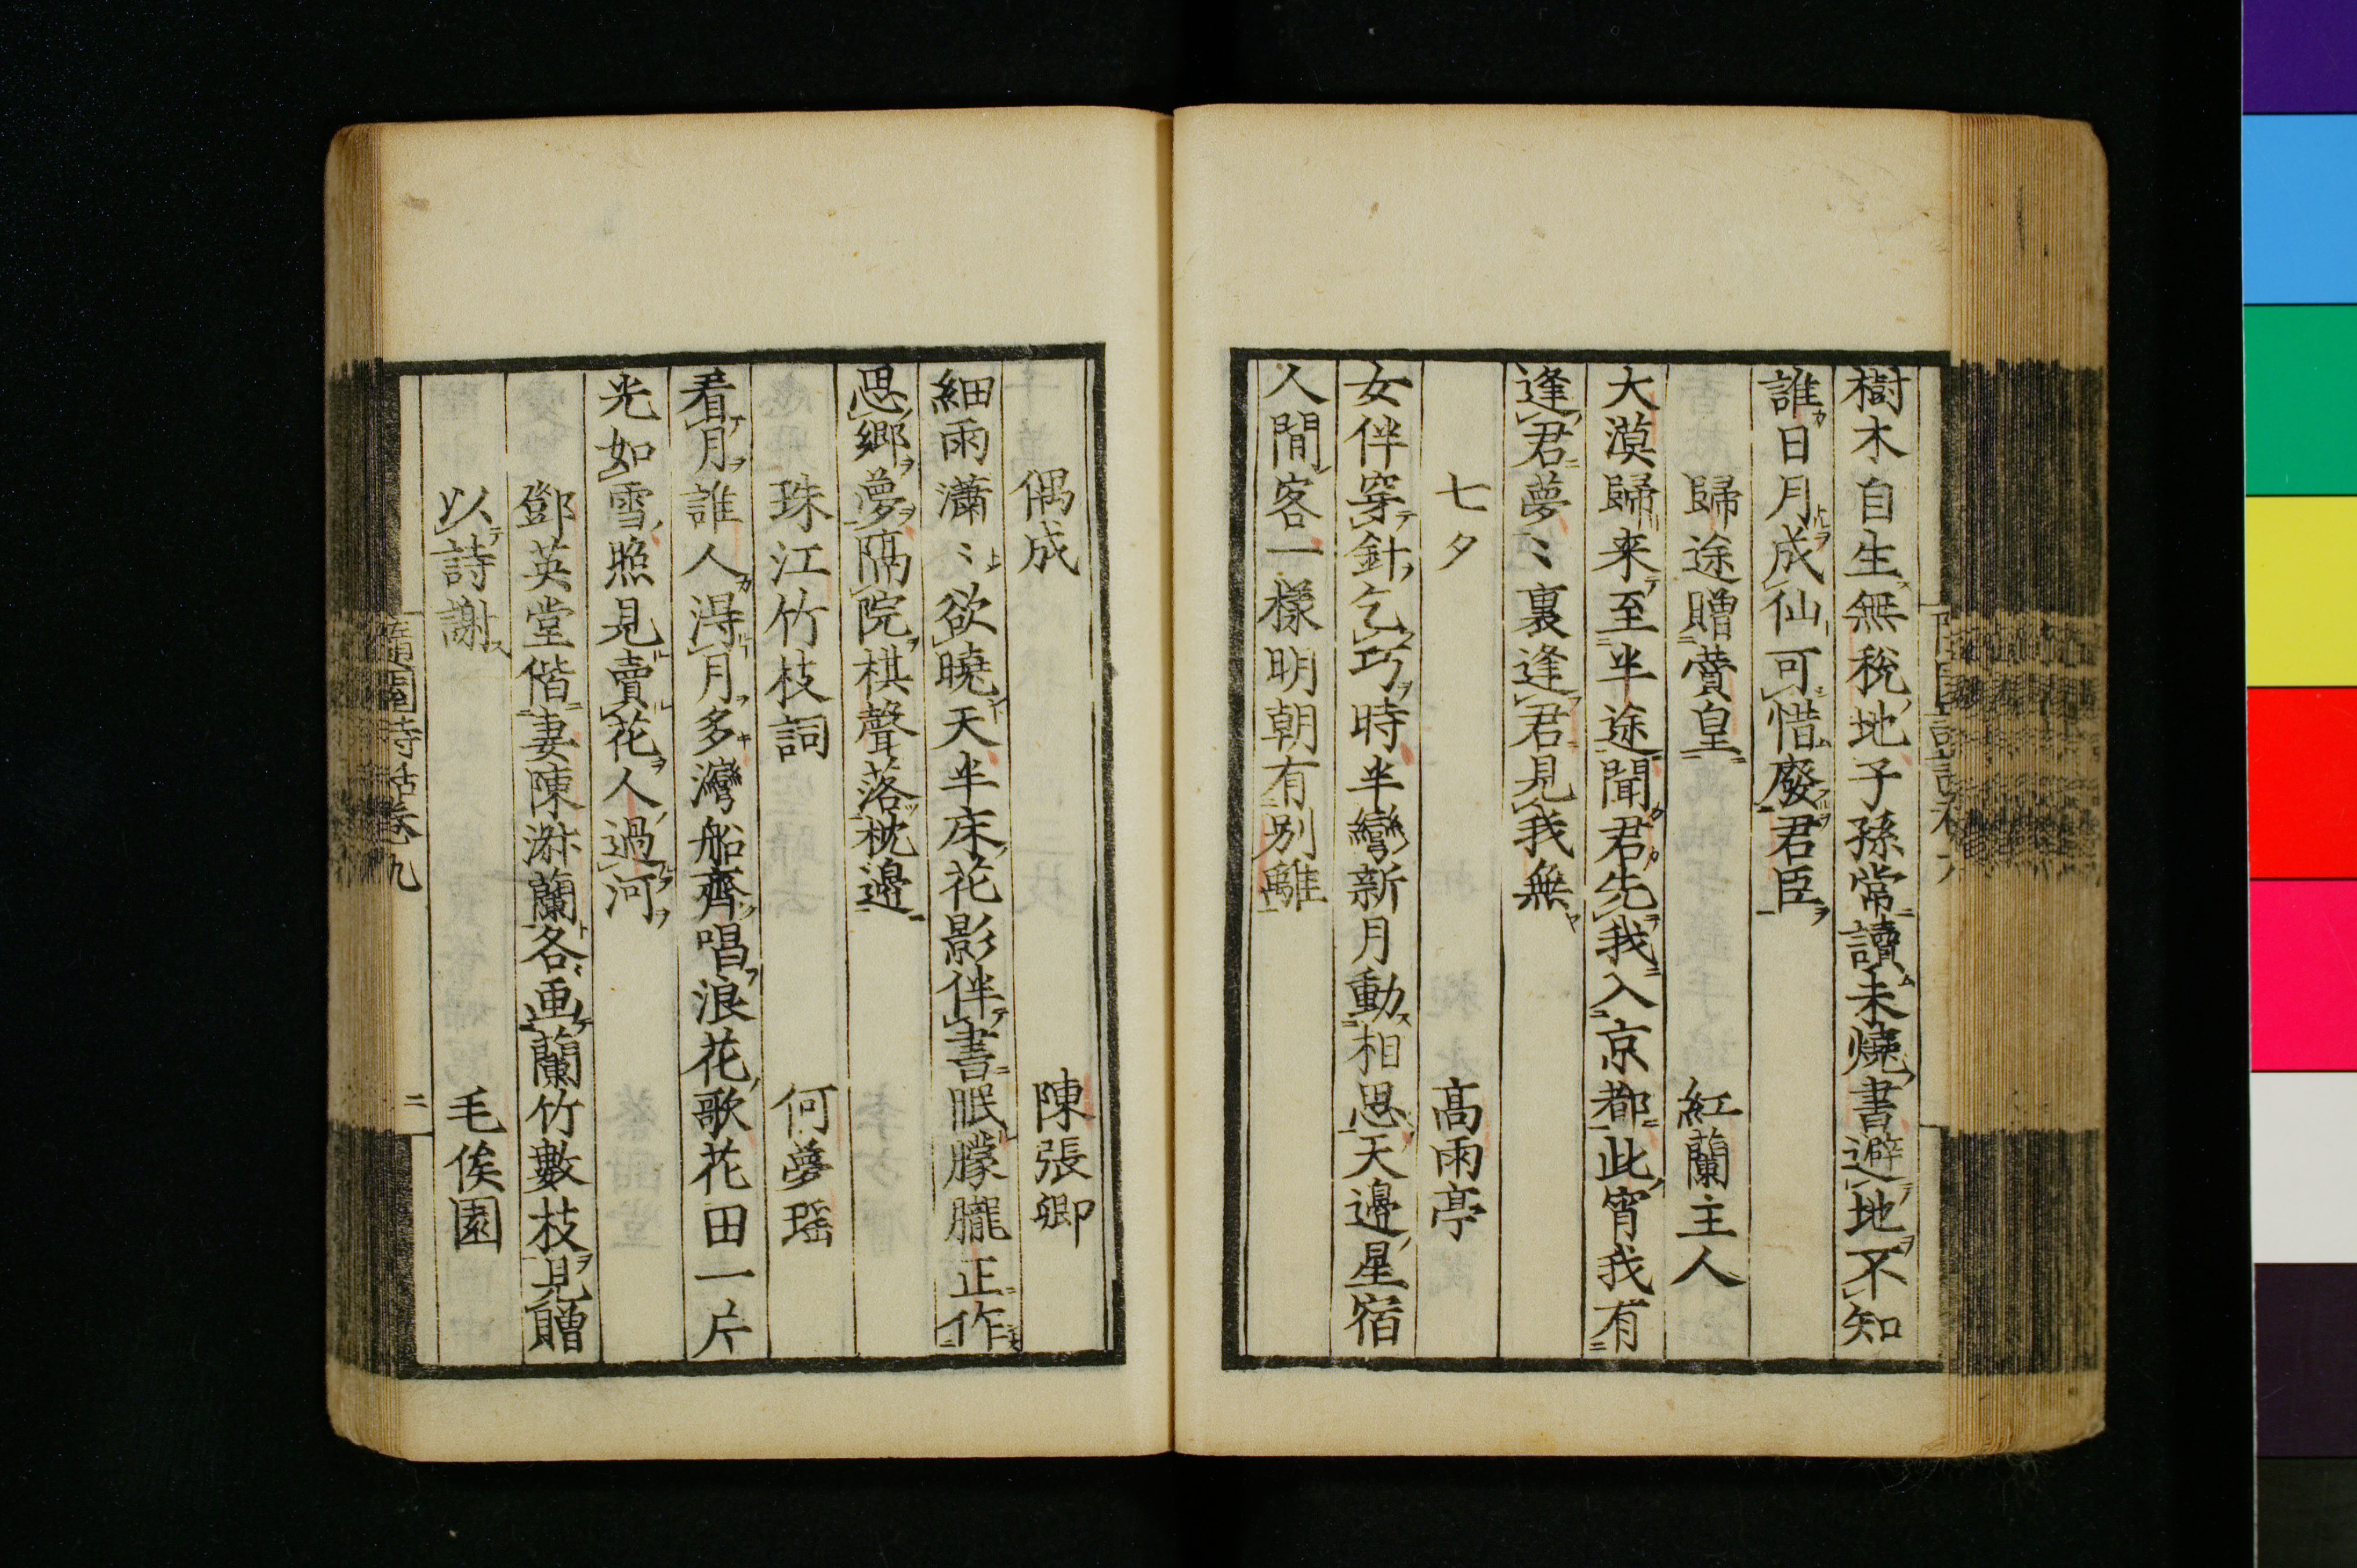 樹木自生無稅地子孫常讀未燒書避地不知
誰日月成仙可惜廢君臣
歸途贈蕢皇 紅蘭主人
大漠歸来至半途聞君先我入京都此宵我有
逢君夢〻裏逢君見我無
七夕 高雨亭
女伴穿針乞巧時半彎新月動相思天邊星宿
人間客一樣明朝有別離
偶成 陳張卿
細雨瀟〻欲曉天半床花影伴書眠朦朧正作
思鄉夢隔院棋聲落枕邊
珠江竹枝詞 何夢瑶
看月誰人得月多灣船齊唱浪花歌花田一片
光如雪照見賣花人過河
鄧英堂偕妻陳淑蘭各画蘭竹數枝見贈
以詩謝 毛俟園
隨園詩話卷九
二